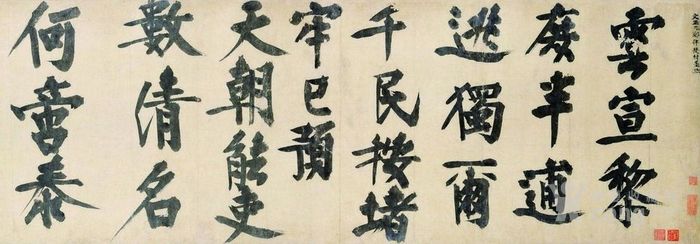 雲宣黎
廢半逋
逃獨爾
千民按堵
牢已
天朝能吏
數清名
何啻泰